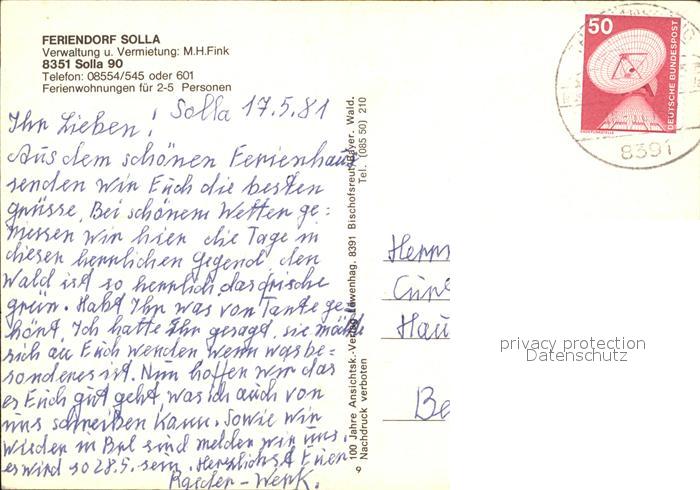 FERIENDORF SOLLA
Verwaltung u. Vermietung: M.H.Fink
8351 Solla 90
Telefon: 08554/545 oder 601
Ferienwohnungen für 2-5 Personen
Solla 17.5.81
Ihr Lieben!
Aus dem schönen Ferienhaus
senden wir Euch die besten
grüsse. Bei schönem Wetter ge=
niessen wir hier die Tage in
dieser herrlichen Gegend, der
Wald ist so herrlich, das frische
grün. Habt Ihr was von Tante ge=
hört. Ich hatte Ihr gesagt, sie möchte
sich an Euch wenden wenn was be=
sonderes ist. Nun hoffen wir das
es Euch gut geht, was ich auch von
uns schreiben kann. Sowie wir
wieder in Brl sind melden wir uns,
es wird so 28.5. sein. Herzlichst Euer
100 Jahre Ansichtsk.-Verlag Löwenhag, 8391 Bischofsreut/Bayer. Wald.
Tel.: (085 50) 210
Nachdruck verboten
9
50
DEUTSCHE BUNDESPOST
8391
Herrn
Hau
Be
privacy protection
Datenschutz